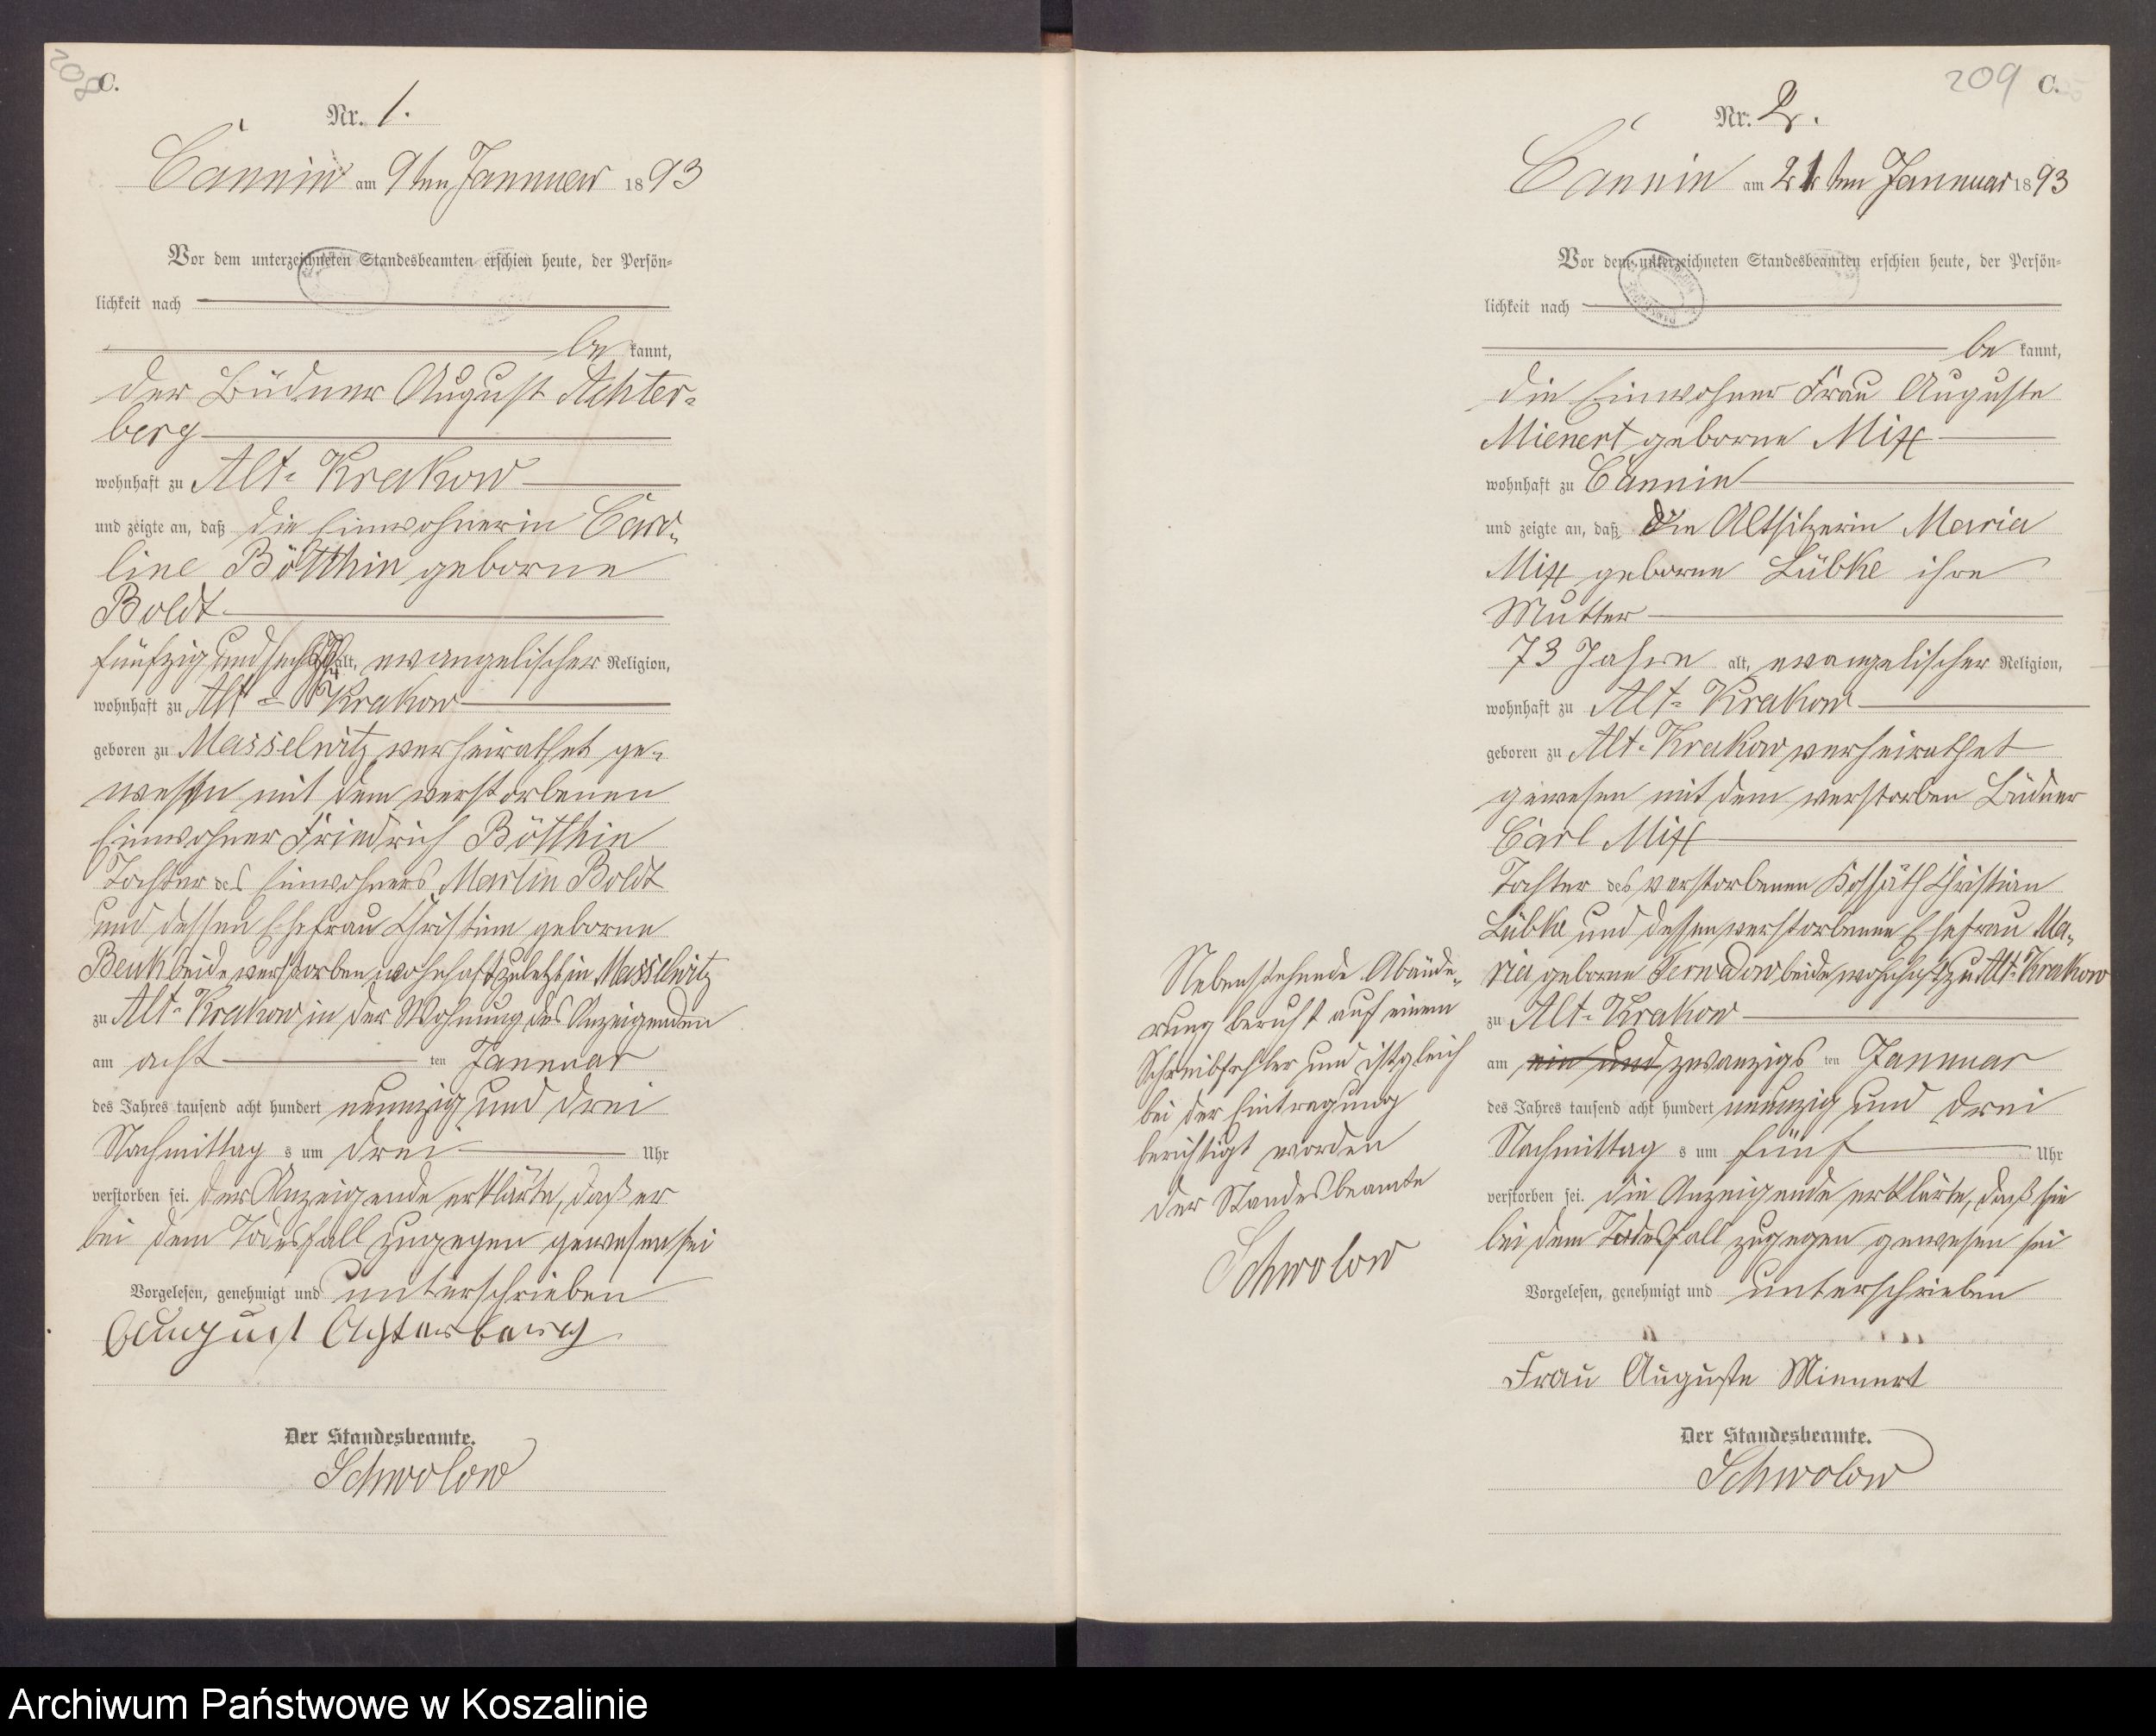 208 C.
Nr. 1.
Cannin am 9ten Januar 1893
Vor dem unterzeichneten Standesbeamten erschien heute, der Persön-
lichkeit nach
be kannt,
der Büdner August Achter-
berg
wohnhaft zu Alt-Krakow
und zeigte an, daß die Einwohnerin Caro-
line Bötthin geborne
Boldt
fünfzig und sechs alt, evangelischer Religion,
wohnhaft zu Alt-Krakow
geboren zu Masselwitz verheirathet ge-
wesen mit dem verstorbenen
Einwohner Friedrich Bötthin
Tochter des Einwohners Martin Boldt
und dessen Ehefrau Christine geborne
Beuk beide verstorben wohnhaft zuletzt in Masselwitz
zu Alt-Krakow in der Wohnung des Anzeigenden
am acht ten Januar
des Jahres tausend acht hundert neunzig und drei
Nachmittag s um drei Uhr
verstorben sei. der Anzeigende erklärte, daß er
bei dem Todesfall zugegen gewesen sei
Vorgelesen, genehmigt und unterschrieben
August Achterberg
Der Standesbeamte.
Schwolow
209 C.
Nr. 2.
Cannin am 21ten Januar 1893
Vor dem unterzeichneten Standesbeamten erschien heute, der Persön-
lichkeit nach
be kannt,
die Einwohner Frau Auguste
Mienert geborne Mix
wohnhaft zu Cannin
und zeigte an, daß die Altsitzerin Maria
Mix geborne Lübke ihre
Mutter
73 Jahre alt, evangelischer Religion,
wohnhaft zu Alt-Krakow
geboren zu Alt-Krakow verheirathet
gewesen mit dem verstorben Büdner
Carl Mix
Tochter des verstorbenen Kossäth Christian
Lübke und dessen verstorbenen Ehefrau Ma-
ria geborne Perwadow beide wohnhaft zu Alt-Krakow
zu Alt-Krakow
am ein und zwanzigs ten Januar
des Jahres tausend acht hundert neunzig und drei
Nachmittag s um fünf Uhr
verstorben sei. die Anzeigende erklärte, daß sie
bei dem Todesfall zugegen gewesen sei
Vorgelesen, genehmigt und unterschrieben
Frau Auguste Mienert
Der Standesbeamte.
Schwolow
Nebenstehende Abände-
rung beruht auf einem
Schreibfehler und ist gleich
bei der Eintragung
berichtigt worden
der Standesbeamte
Schwolow
Archiwum Państwowe w Koszalinie